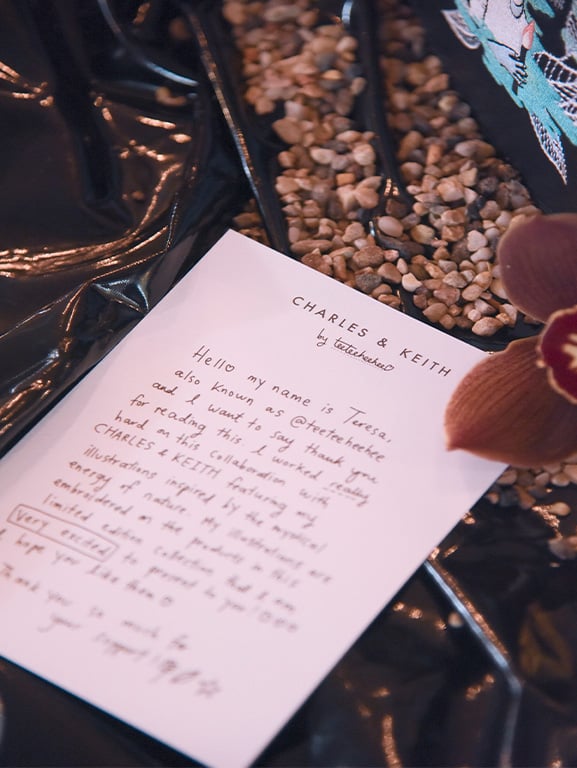 CHARLES & KEITH
by teeteeheehee♡
Hello♡ my name is Teresa,
also known as @teeteeheehee
and I want to say thank you
for reading this. I worked really
hard on this collaboration with
CHARLES & KEITH featuring my
illustrations inspired by the mystical
energy of nature. My illustrations are
embroidered on the products in this
limited edition collection that I am
very excited to present to you!
I hope you like them
Thank you so much for
your support!